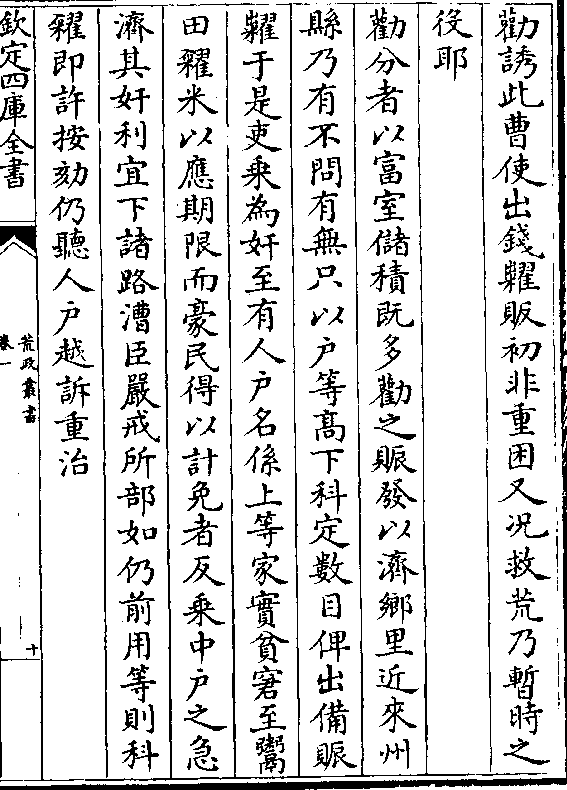 勸誘此曹使出錢糶販初非重困又况救荒乃暫時之
役耶
勸分者以富室儲積既多勸之賑發以濟鄉里近來州
縣乃有不問有無只以户等髙下科定數目俾出備賑
糶于是吏乗為奸至有人户名係上等家實貧窘至鬻
田糴米以應期限而豪民得以計免者反乗中户之急
濟其奸利宜下諸路漕臣嚴戒所部如仍前用等則科
糶即許按劾仍聽人户越訴重治
欽定四庫全書
荒政叢書
卷一
十